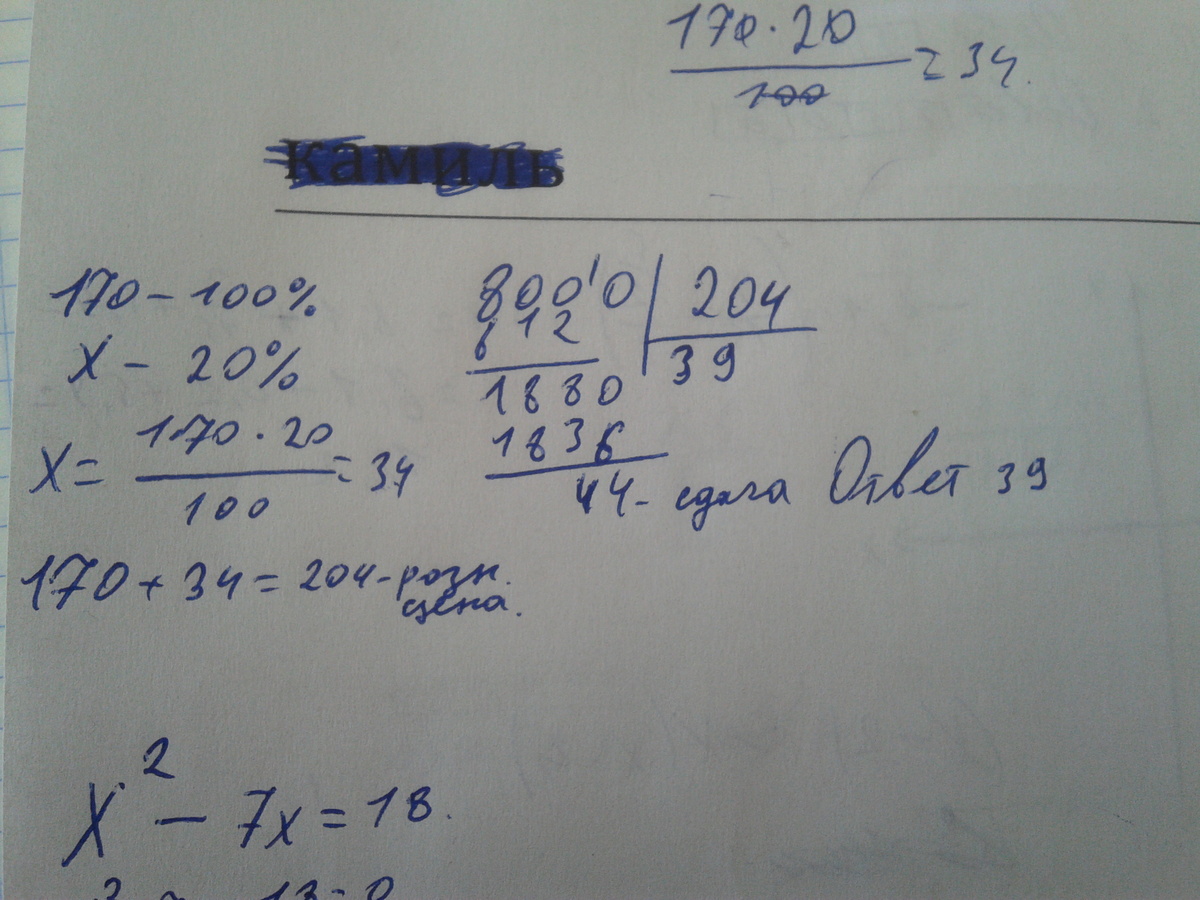 170 · 20
100
= 34.
камиль
170 – 100%
X – 20%
X = 170 · 20 / 100 = 34
170 + 34 = 204 - розн.
цена.
8000 | 204
612
39
1880
1836
44 - сдача Ответ 39
X² – 7x = 18.